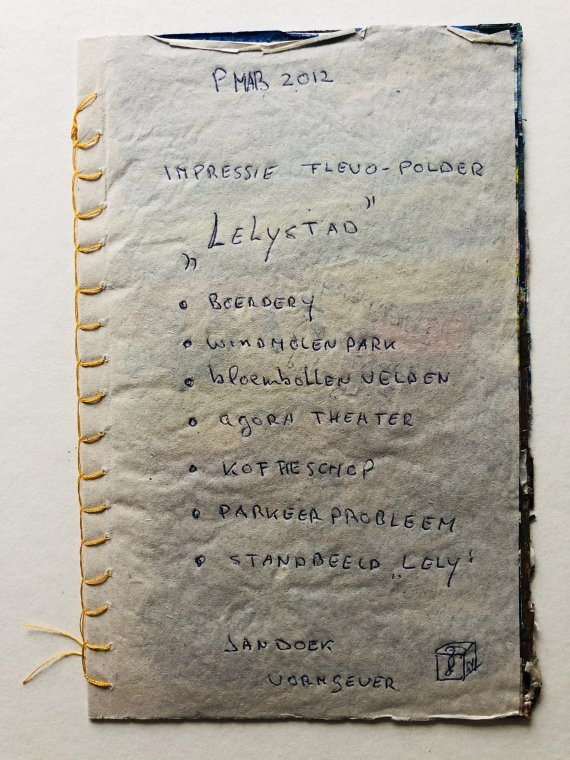 PMAB 2012
IMPRESSIE FLEVO-POLDER
„LELYSTAD"
• BOERDERY
• WINDMOLENPARK
• bloembollen VELDEN
• agora THEATER
• KOFFIESCHOP
• PARKEERPROBLEEM
• STANDBEELD „LELY"
JANDOEK
VORMGEVER